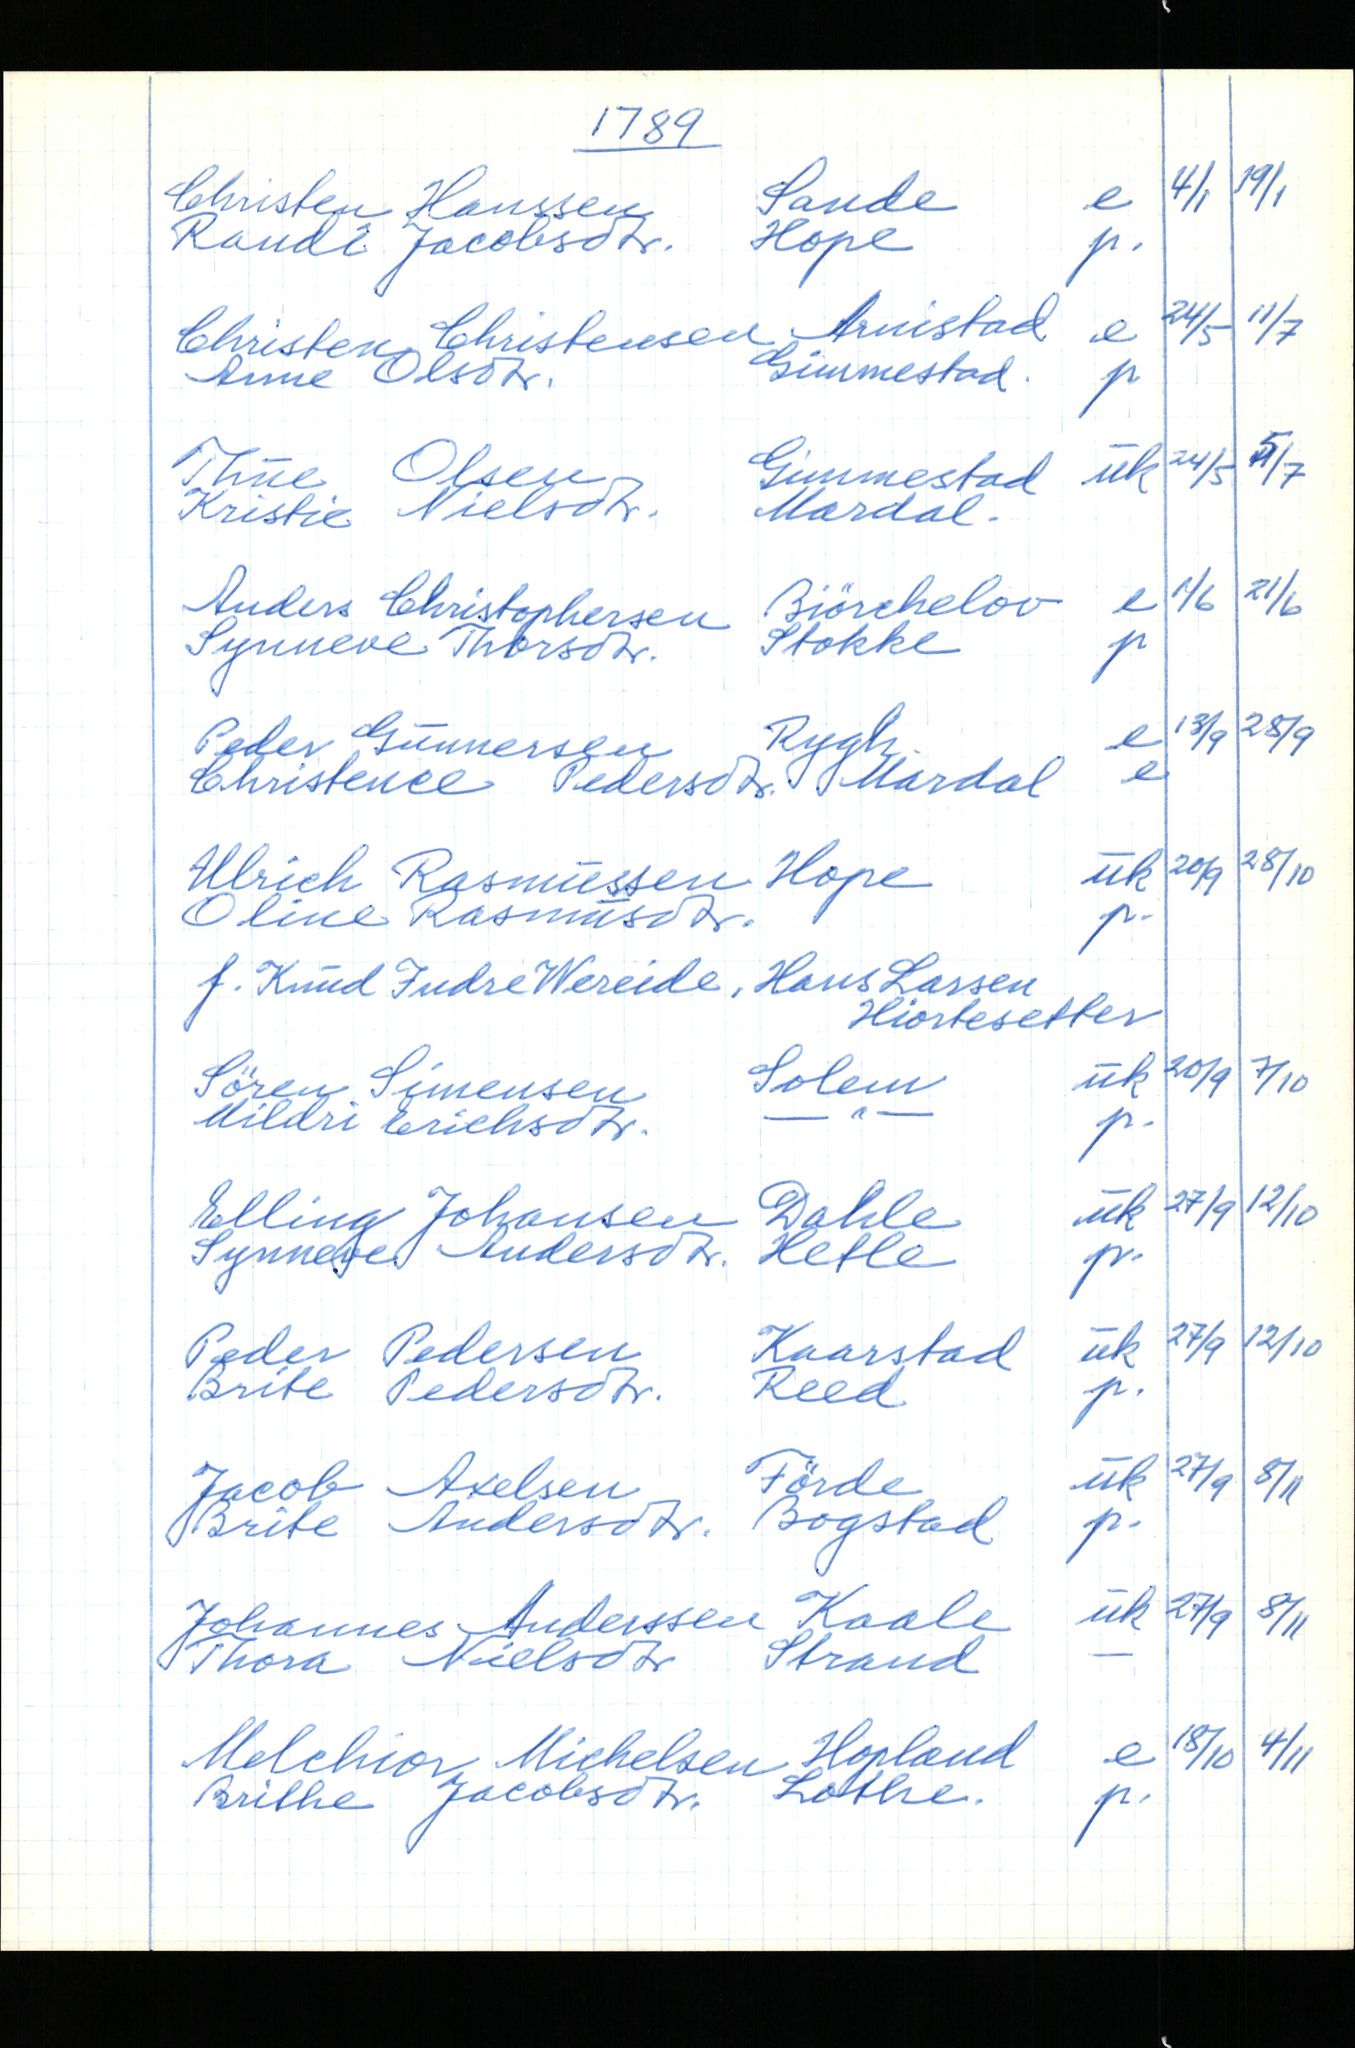 1789
Christen Hanssen Sande e 4/1 19/1
Randi Jacobsdtr. Hope p.
Christen Christensen Arnistad e 24/5 11/7
Anne Olsdtr. Gimmestad. p
Thue Olsen Gimmestad uk 24/5 5/7
Kristie Nielsdtr. Mardal.
Anders Christophersen Biörchelov e 1/6 21/6
Synneve Thorsdtr. Stokke p
Peder Gunnersen Rygh. e 13/9 28/9
Christence Pedersdtr. Mardal e
Ulrich Rasmussen Hope uk 20/9 28/10
Oline Rasmusdtr. p.
f. Knud Indre Wereide, Hans Lassen
Hiortesetter
Sören Simensen Solem uk 20/9 7/10
Mildri Erichsdtr. — " — p.
Elling Johansen Dahle uk 27/9 12/10
Synneve Andersdtr. Hetle p.
Peder Pedersen Kaarstad uk 27/9 12/10
Brite Pedersdtr. Reed p.
Jacob Axelsen Förde uk 27/9 8/11
Brite Andersdtr. Bogstad p.
Johannes Anderssen Kaale uk 27/9 8/11
Thora Nielsdtr Strand —
Melchior Michelsen Hopland e 18/10 4/11
Brithe Jacobsdtr. Lothe. p.